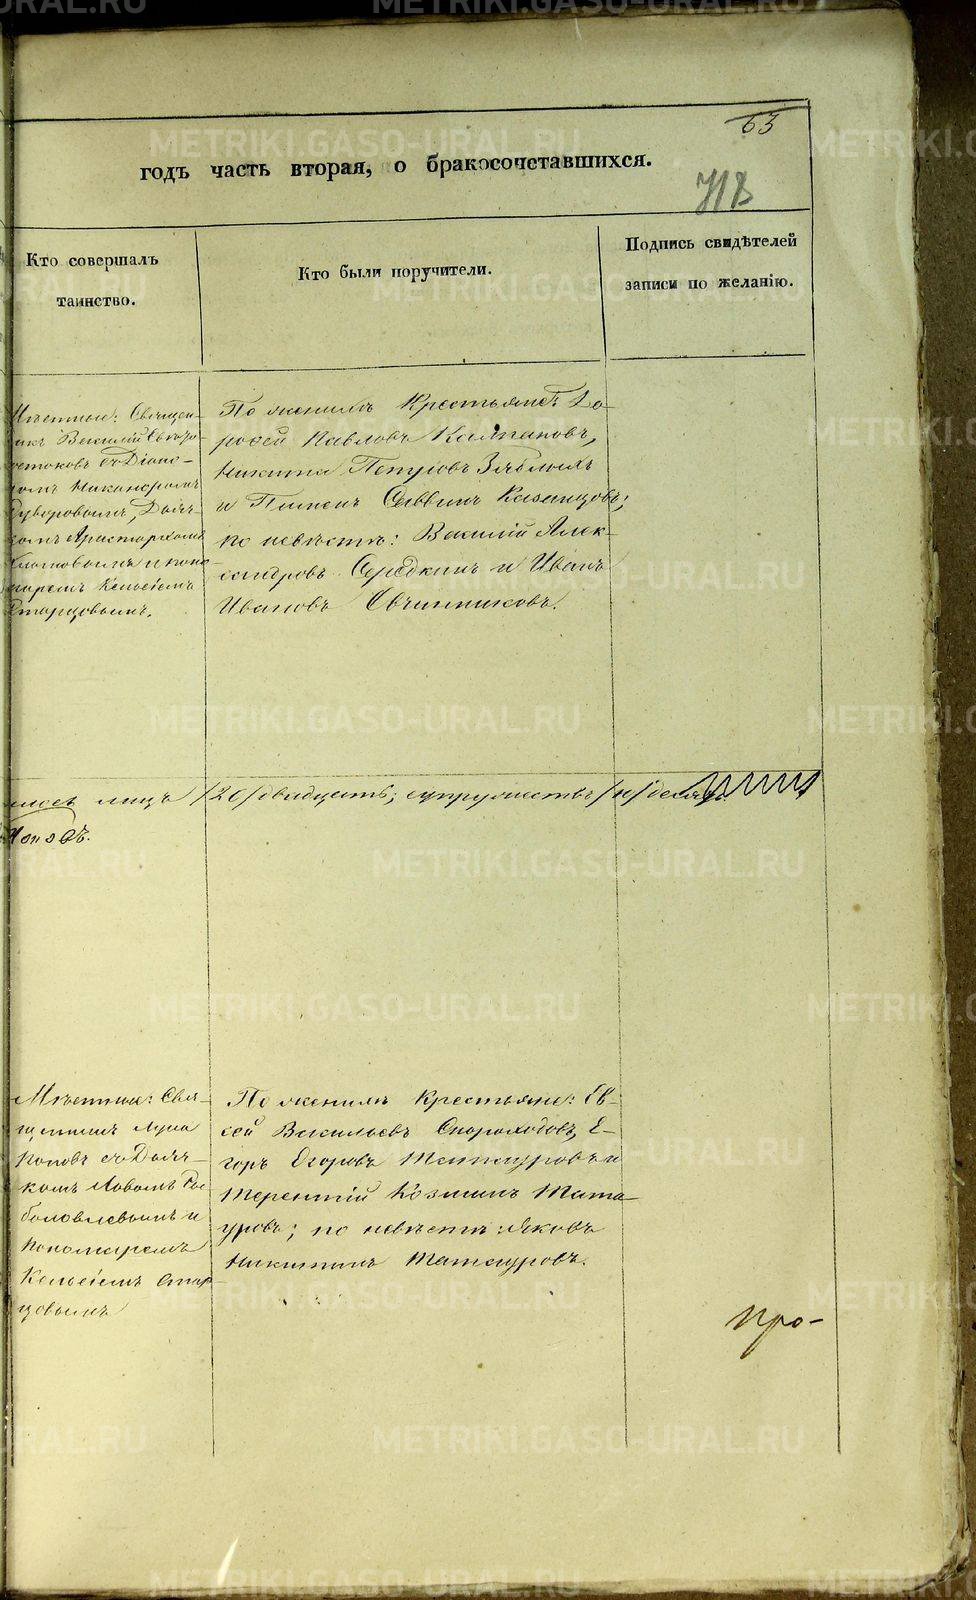 63
годъ часть вторая, о бракосочетавшихся.
718
Кто совершалъ
таинство.
Кто были поручители.
Подпись свидѣтелей
записи по желанію.
Мѣстные: Священ-
никъ Василій
съ Діако-
номъ Никаноромъ
Суворовымъ, Дьяч-
комъ Аристархомъ
и поно-
маремъ Кельсіемъ
Старцовымъ.
По женихѣ Крестьяне: До-
рофей Павловъ Калпаковъ,
Никита Петровъ Зяблыхъ
и Пименъ Саввинъ Казанцовъ;
по невѣстѣ: Василій Алек-
сандровъ Середкинъ и Иванъ
Ивановъ Овчинниковъ.
лицъ /20/ двадцать; супружествъ /10/ десять.
Поповъ.
Мѣстные: Свя-
щенникъ Лука
Поповъ съ Дьяч-
комъ Іовомъ Бо-
и
Пономаремъ
Кельсіемъ Стар-
цовымъ
По женихѣ Крестьяне: Ев-
сей Васильевъ Скороходовъ, Е-
горъ Егоровъ Татауровъ и
Терентій Козминъ Тата-
уровъ; по невѣстѣ: Яковъ
Никитинъ Татауровъ.
Про-
METRIKI.GASO-URAL.RU